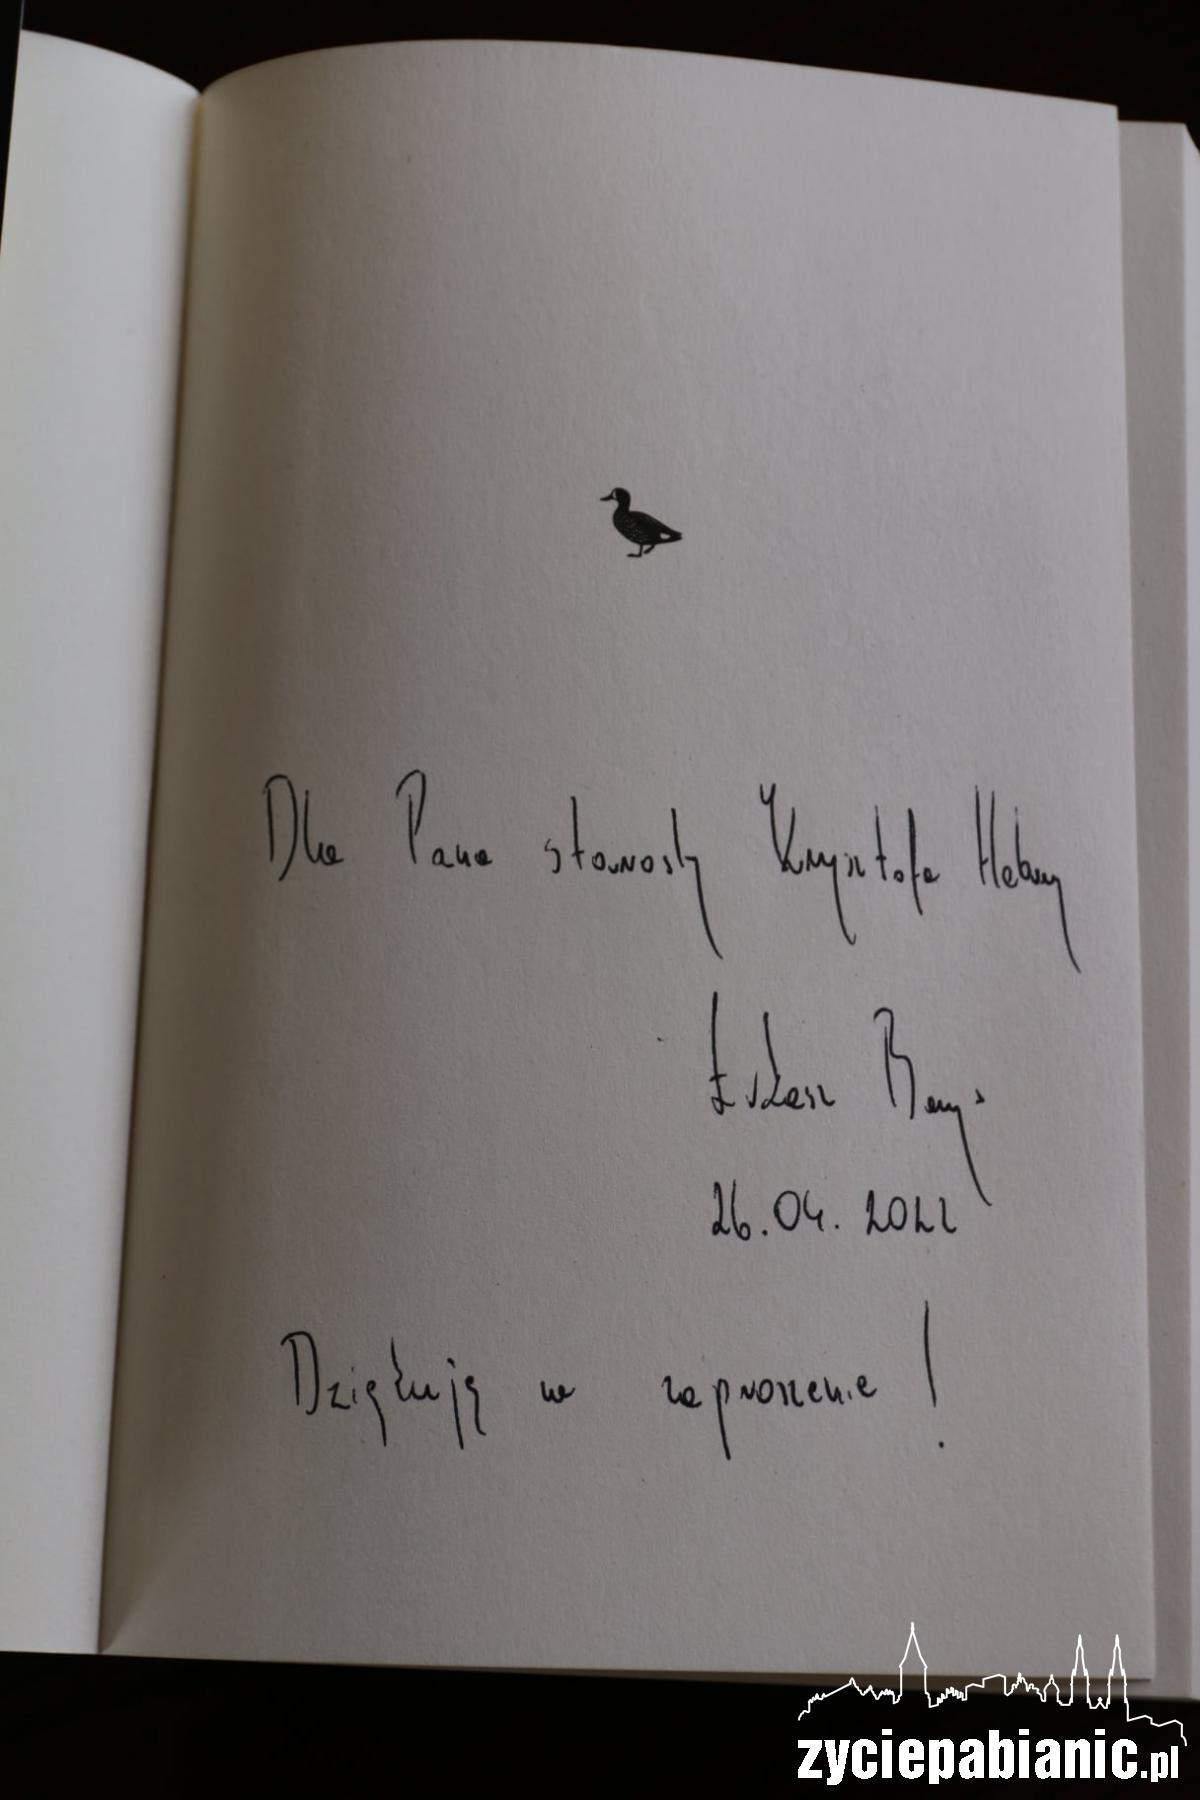 Dla Pana starosty Krzysztofa Habury
Łukasz Barys
26.04.2022
Dziękuję za zaproszenie!
zyciepabianic.pl